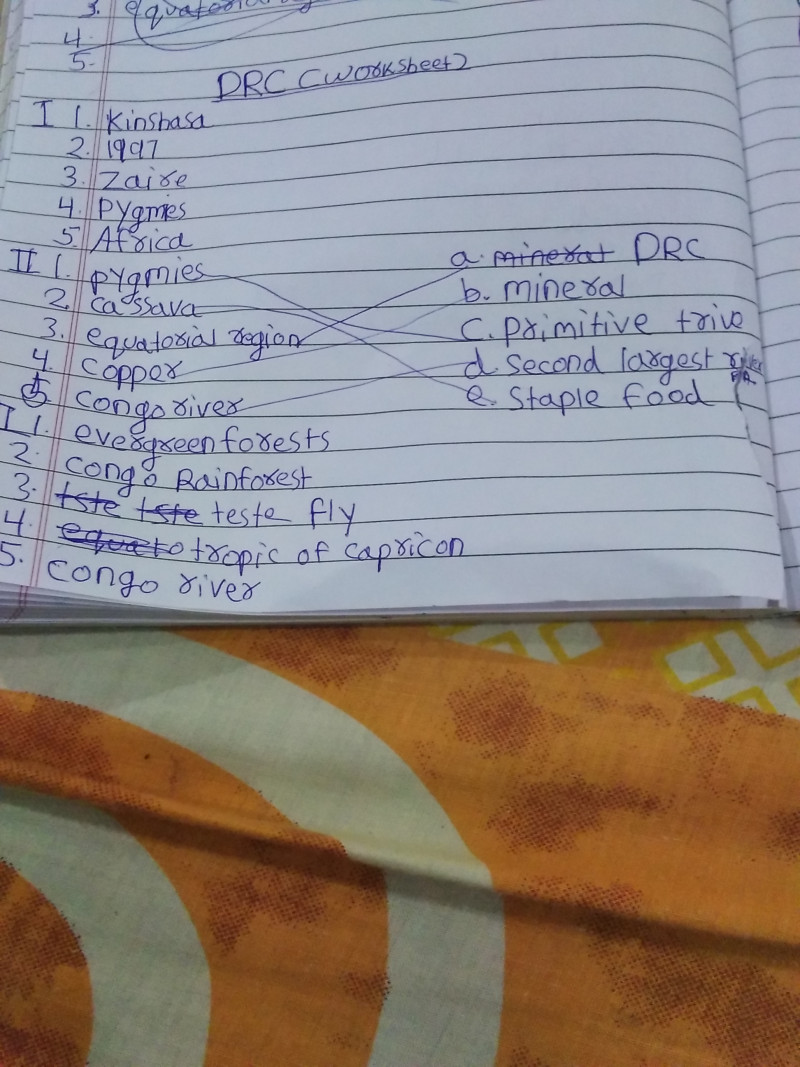 3. equatorial
4.
5.
DRC (worksheet)
I 1. Kinshasa
2. 1997
3. Zaire
4. Pygmies
5. Africa
II 1. pygmies a. mineral DRC
2. cassava b. mineral
3. equatorial region c. primitive trive
4. copper d. second largest river
5. congo river e. staple food
I 1. evergreen forests
2. congo Rainforest
3. tste tste teste fly
4. equato tropic of capricon
5. congo river